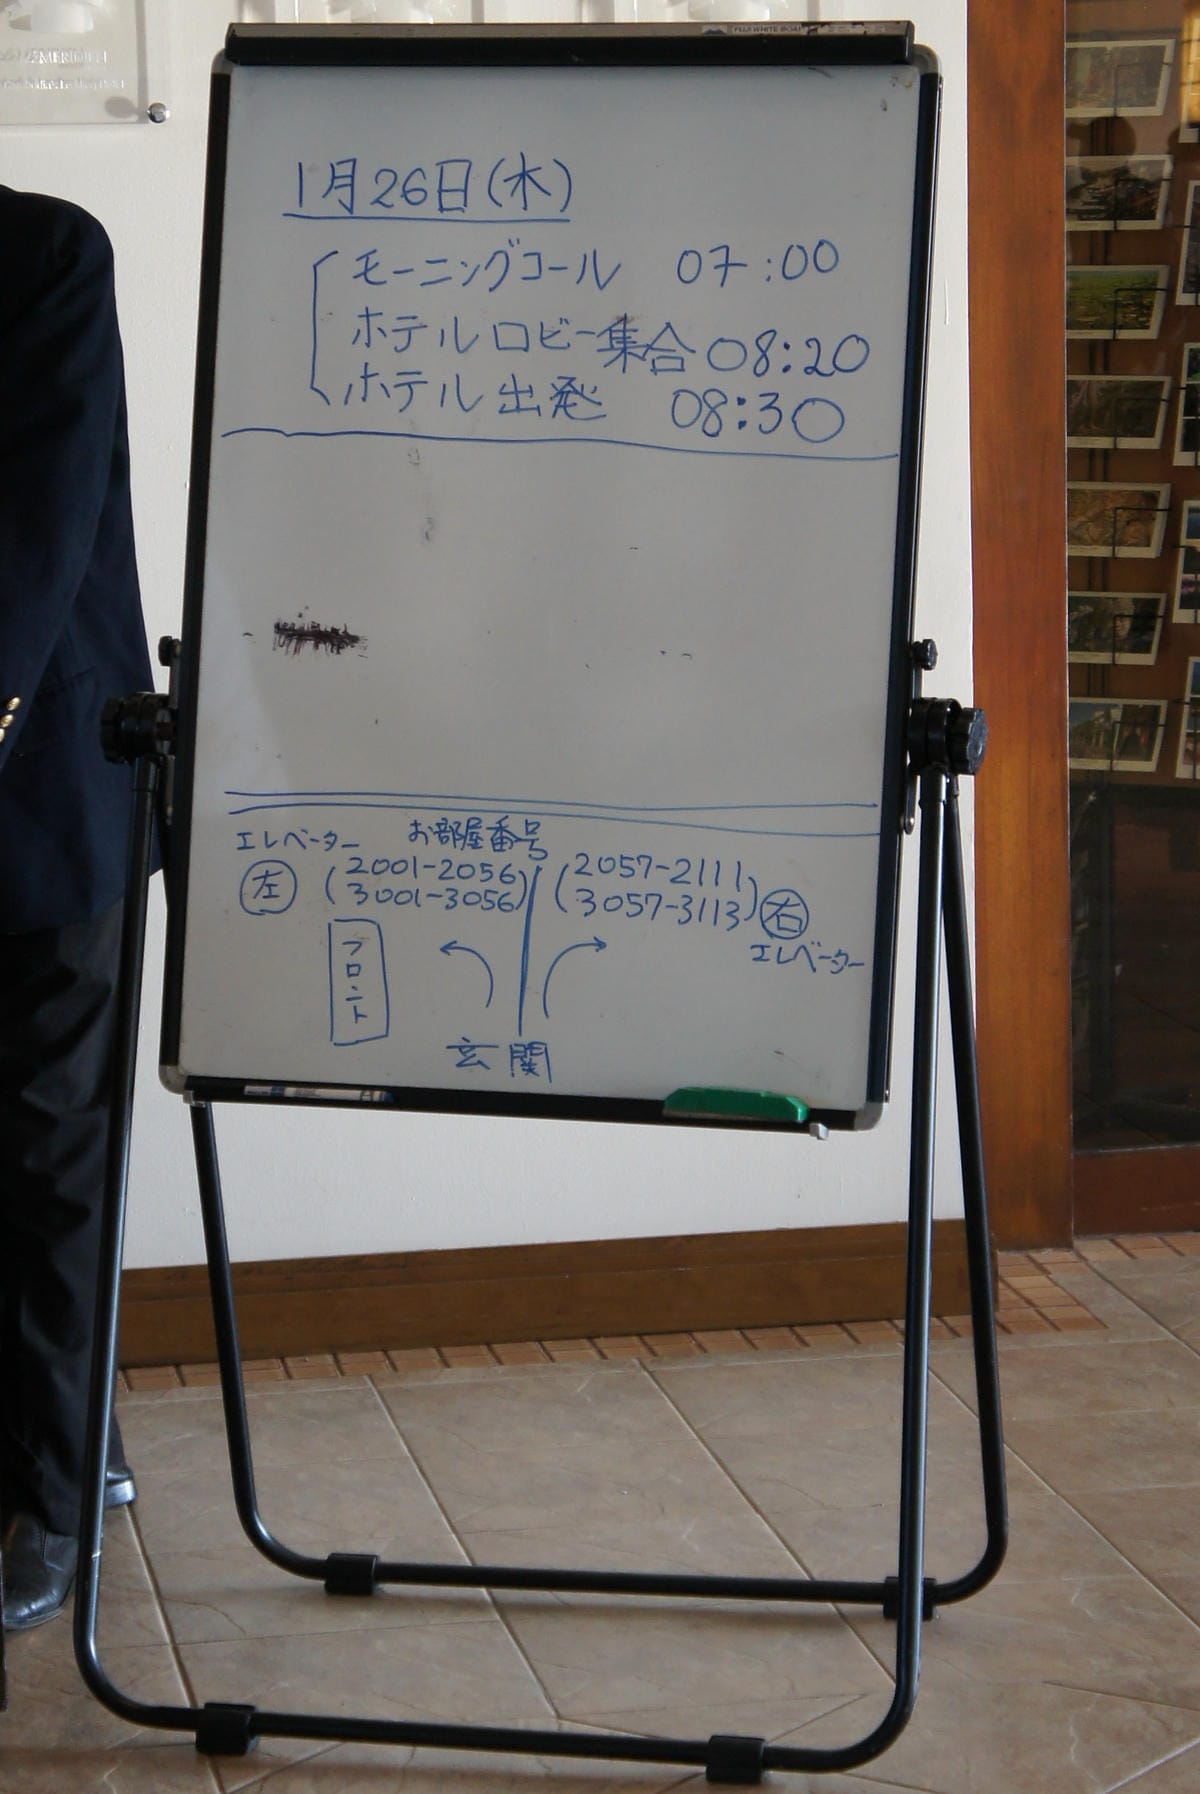 MERIDIEN
FUJI WHITE BOARD
1月26日(木)
モーニングコール 07:00
ホテルロビー集合 08:20
ホテル出発 08:30
エレベーター お部屋番号
左 (2001-2056 (2057-2111
3001-3056) 3057-3113) 右
エレベーター
フロント
玄関